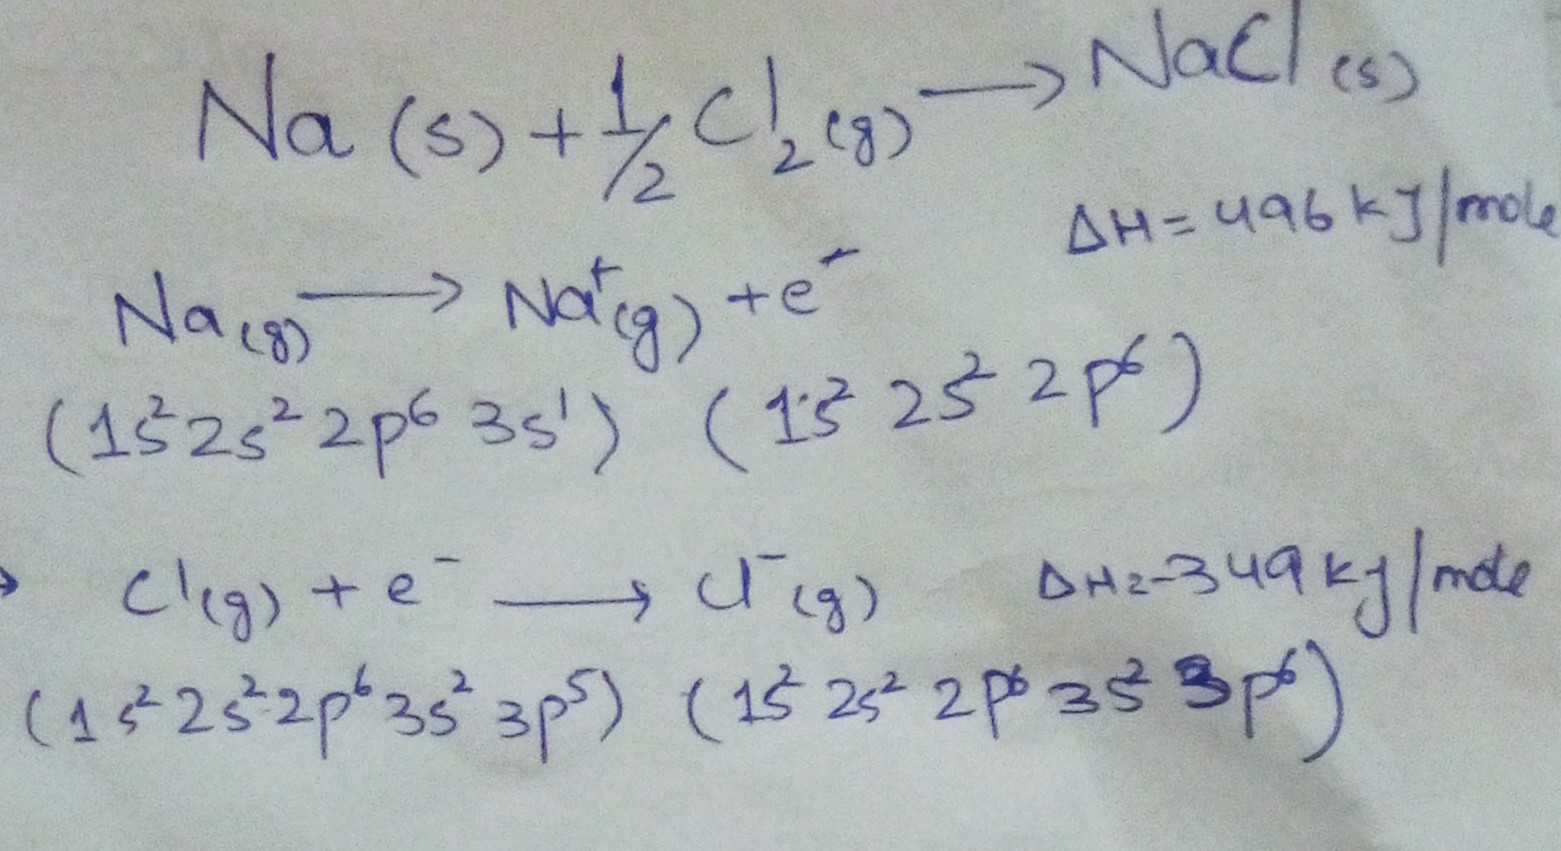 Na (s) + 1/2 Cl₂ (g) ⟶ NaCl (s)
ΔH = 496 kJ/mole
Na (g) ⟶ Na⁺(g) + e⁻
(1s² 2s² 2p⁶ 3s¹) (1s² 2s² 2p⁶)
Cl(g) + e⁻ ⟶ Cl⁻(g) ΔH = -349 kJ/mole
(1s² 2s² 2p⁶ 3s² 3p⁵) (1s² 2s² 2p⁶ 3s² 3p⁶)